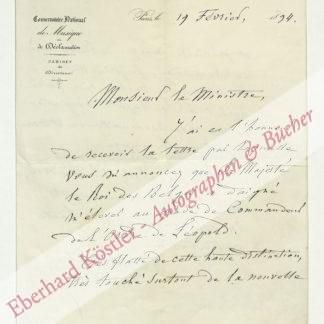 Conservatoire National
de Musique
et de
Déclamation
CABINET
du
Directeur
Paris, le 19 Février 1894.
Monsieur le Ministre,
J'ai eu l'honneur
de recevoir la lettre par laquelle
vous m'annoncez que Sa Majesté
le Roi des Belges a daigné
m'élever au grade de Commandeur
de l'Ordre de Léopold.
Très flatté de cette haute distinction,
très touché surtout de la nouvelle
Eberhard Köstler - Autographen & Bücher